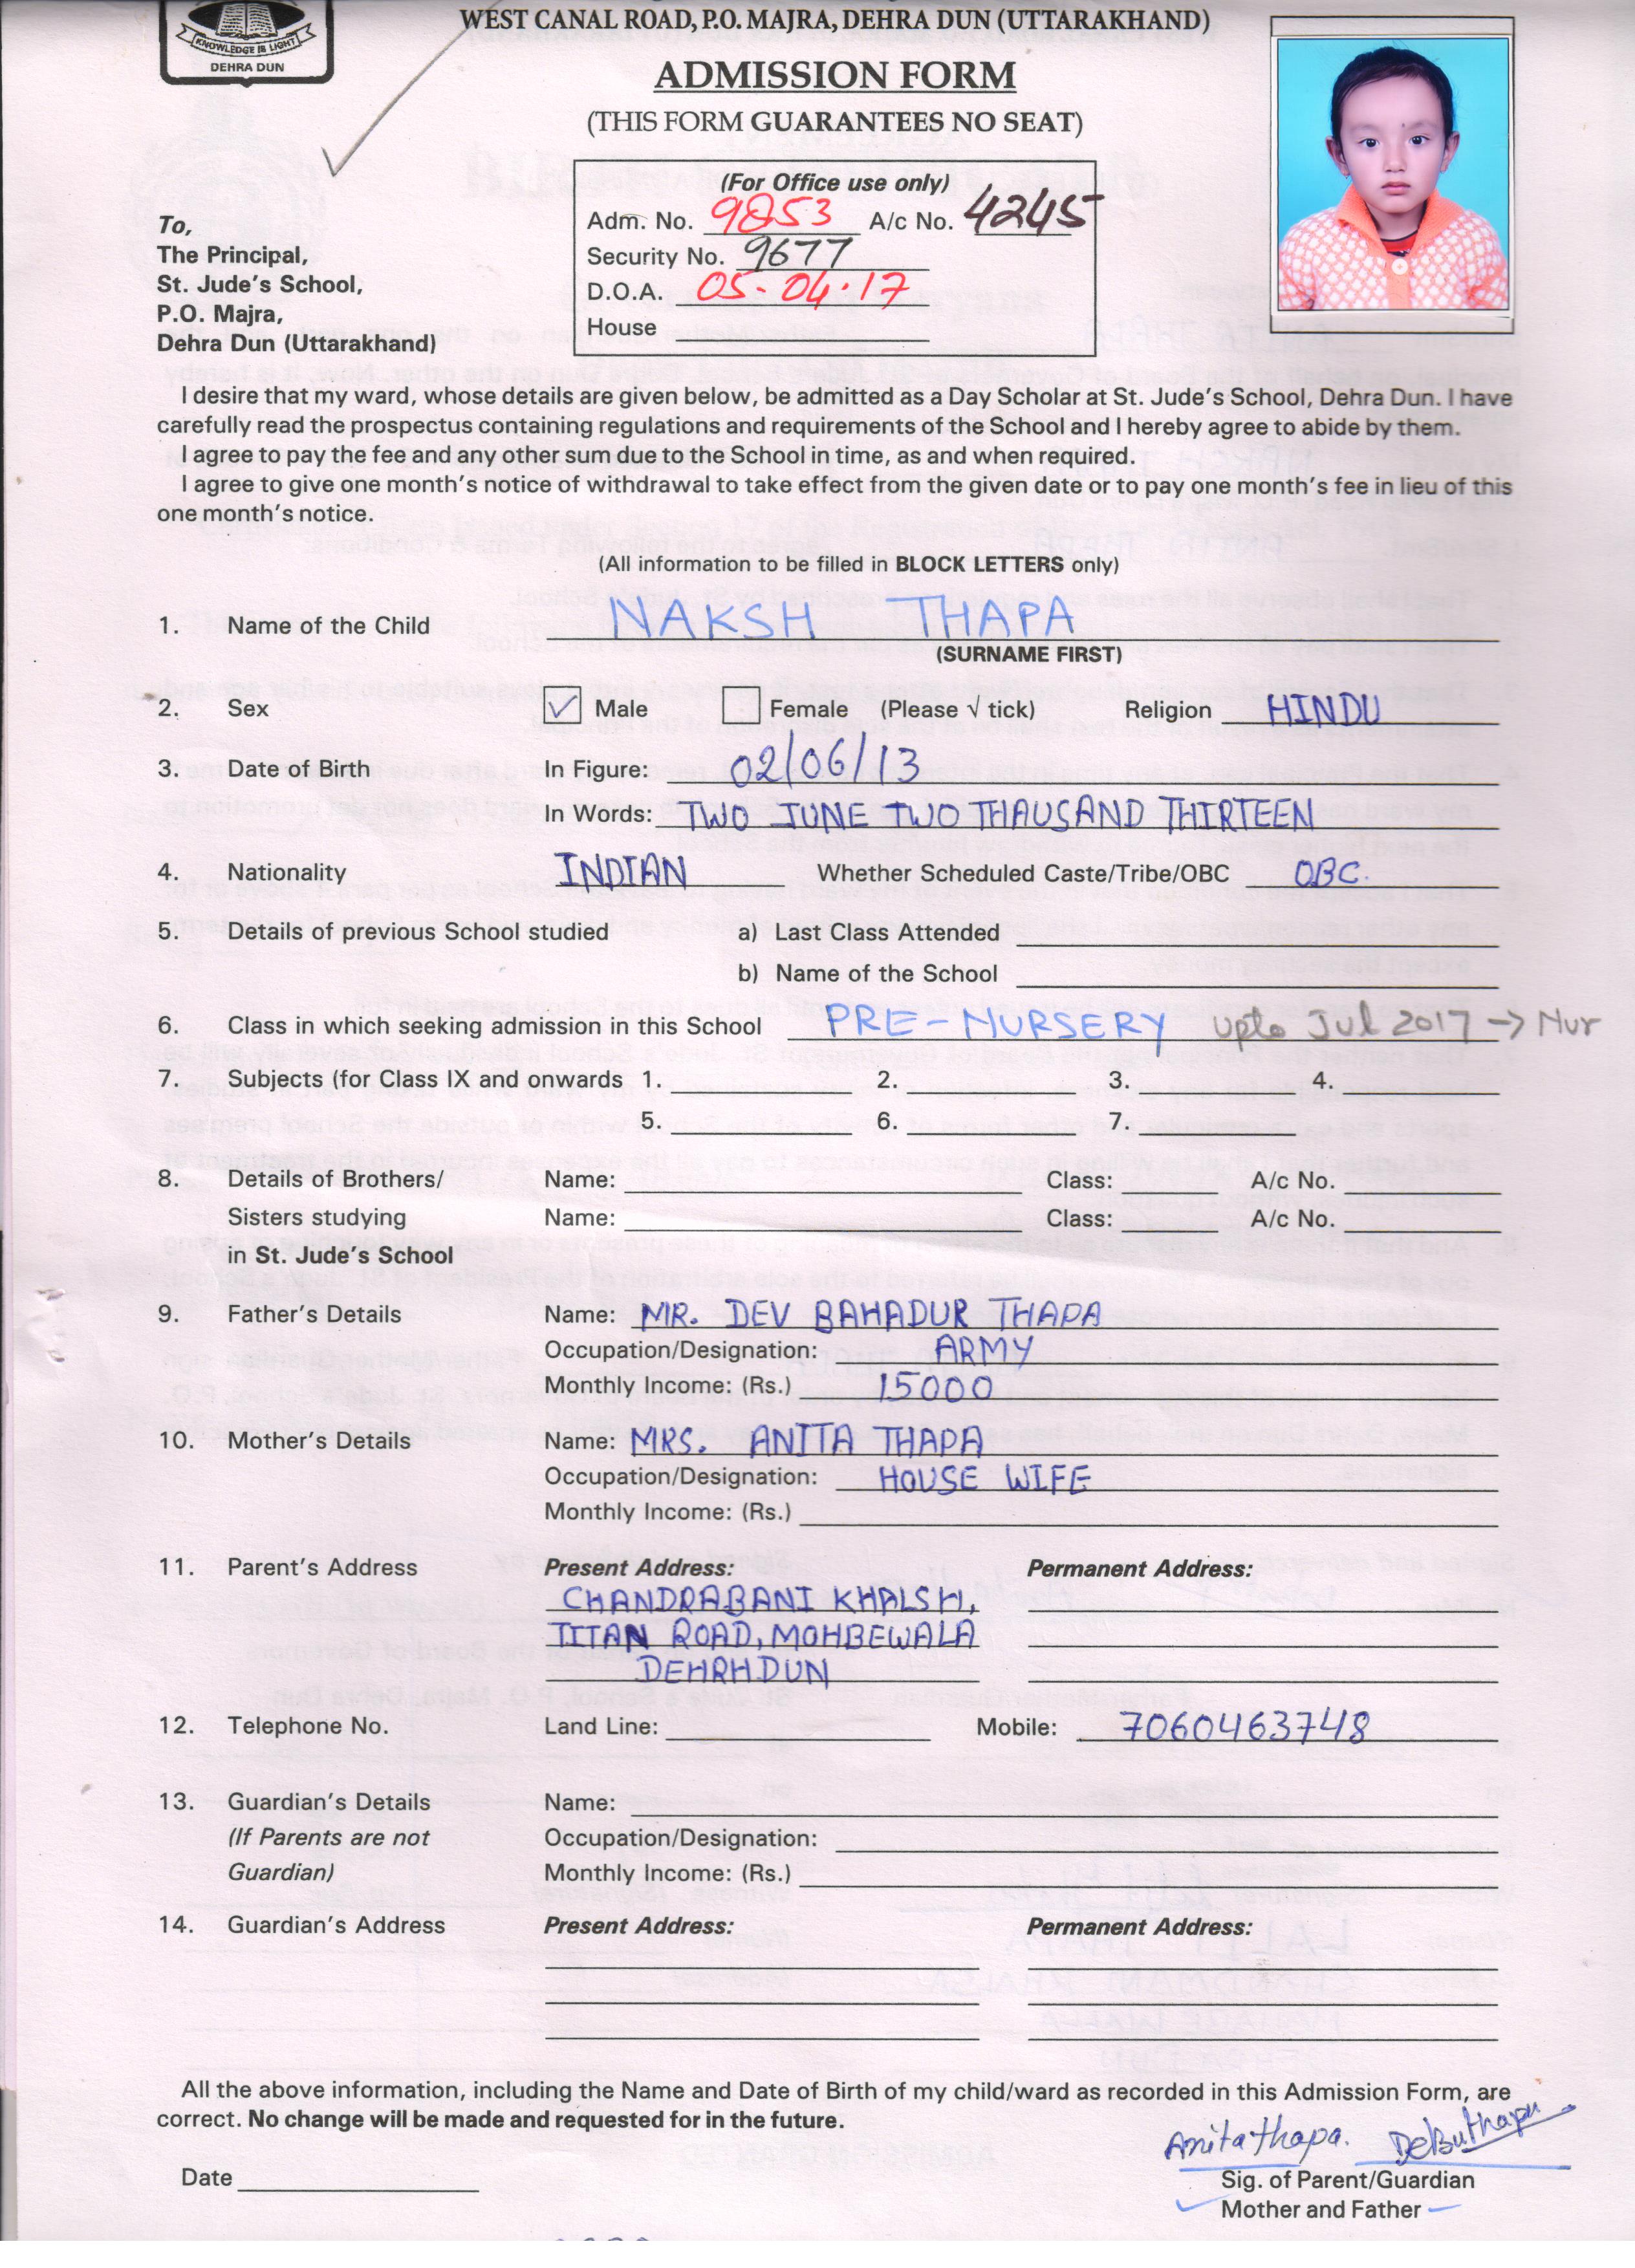 KNOWLEDGE IS LIGHT
DEHRA DUN
WEST CANAL ROAD, P.O. MAJRA, DEHRA DUN (UTTARAKHAND)
ADMISSION FORM
(THIS FORM GUARANTEES NO SEAT)
(For Office use only)
Adm. No. 9853 A/c No. 4245
Security No. 9677
D.O.A. 05-04-17
House
To,
The Principal,
St. Jude's School,
P.O. Majra,
Dehra Dun (Uttarakhand)
I desire that my ward, whose details are given below, be admitted as a Day Scholar at St. Jude's School, Dehra Dun. I have
carefully read the prospectus containing regulations and requirements of the School and I hereby agree to abide by them.
I agree to pay the fee and any other sum due to the School in time, as and when required.
I agree to give one month's notice of withdrawal to take effect from the given date or to pay one month's fee in lieu of this
one month's notice.
(All information to be filled in BLOCK LETTERS only)
1. Name of the Child NAKSH THAPA
(SURNAME FIRST)
2. Sex ✓ Male Female (Please √ tick) Religion HINDU
3. Date of Birth In Figure: 02/06/13
In Words: TWO JUNE TWO THAUSAND THIRTEEN
4. Nationality INDIAN Whether Scheduled Caste/Tribe/OBC OBC.
5. Details of previous School studied a) Last Class Attended
b) Name of the School
6. Class in which seeking admission in this School PRE-NURSERY upto Jul 2017 → Nur
7. Subjects (for Class IX and onwards 1. 2. 3. 4.
5. 6. 7.
8. Details of Brothers/ Name: Class: A/c No.
Sisters studying Name: Class: A/c No.
in St. Jude's School
9. Father's Details Name: MR. DEV BAHADUR THAPA
Occupation/Designation: ARMY
Monthly Income: (Rs.) 15000
10. Mother's Details Name: MRS. ANITA THAPA
Occupation/Designation: HOUSE WIFE
Monthly Income: (Rs.)
11. Parent's Address Present Address: Permanent Address:
CHANDRABANI KHALSH,
TITAN ROAD, MOHBEWALA
DEHRHDUN
12. Telephone No. Land Line: Mobile: 7060463748
13. Guardian's Details Name:
(If Parents are not Occupation/Designation:
Guardian) Monthly Income: (Rs.)
14. Guardian's Address Present Address: Permanent Address:
All the above information, including the Name and Date of Birth of my child/ward as recorded in this Admission Form, are
correct. No change will be made and requested for in the future.
Anita thapa. Debuthapa
Date Sig. of Parent/Guardian
Mother and Father